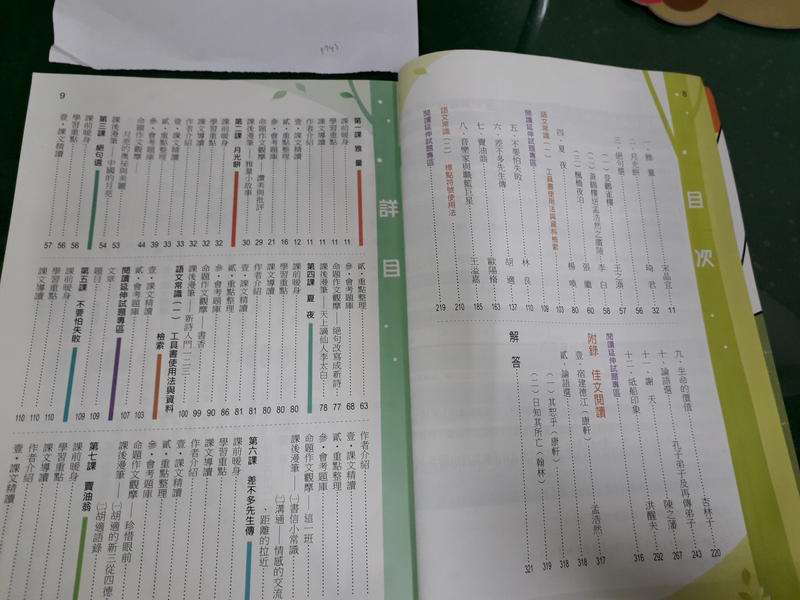 8
目次
一、雅量 宋晶宜 11
二、月光餅 琦君 32
三、絕句選 56
(一)登鸛雀樓 王之渙 57
(二)黃鶴樓送孟浩然之廣陵 李白 58
(三)楓橋夜泊 張繼 60
四、夏夜 楊喚 80
語文常識(一) 工具書使用法與資料檢索 103
閱讀延伸試題專區 109
五、不要怕失敗 林良 110
六、差不多先生傳 胡適 137
七、賣油翁 歐陽脩 163
八、音樂家與職籃巨星 王溢嘉 185
語文常識(二) 標點符號使用法 210
閱讀延伸試題專區 219
九、生命的價值 杏林子 220
十、論語選 孔子弟子及再傳弟子 243
十一、謝天 陳之藩 267
十二、紙船印象 洪醒夫 292
閱讀延伸試題專區 316
附錄 佳文閱讀
壹、宿建德江(康軒) 孟浩然 317
貳、論語選 318
(一)其恕乎(康軒) 318
(二)日知其所亡(翰林) 319
解答 321
9
詳目
第一課 雅量
課前暖身 11
學習重點 11
課文導讀 11
作者介紹 11
壹・課文精讀 12
貳・重點整理 16
參・會考題庫 21
命題作文觀摩 讚美與批評 29
課後漫筆 雅量小故事 30
第二課 月光餅
課前暖身 32
學習重點 32
課文導讀 32
作者介紹 33
壹・課文精讀 33
貳・重點整理 39
參・會考題庫 44
命題作文觀摩 月亮的奧祕與美麗 53
課後漫筆 中國的月亮 54
第三課 絕句選
課前暖身 56
學習重點 56
壹・課文精讀 57
貳・重點整理 63
參・會考題庫 68
命題作文觀摩 絕句改寫成新詩 77
課後漫筆——天上謫仙人李太白 78
第四課 夏夜
課前暖身 80
學習重點 80
課文導讀 80
作者介紹 81
壹・課文精讀 81
貳・重點整理 86
參・會考題庫 90
命題作文觀摩 書香 99
課後漫筆 新詩入門一二三 100
語文常識(一) 工具書使用法與資料檢索
壹・課文精讀 103
參・會考題庫 107
閱讀延伸試題專區
文章 109
題目 109
第五課 不要怕失敗
課前暖身 110
學習重點 110
課文導讀 110
作者介紹
壹・課文精讀
貳・重點整理
參・會考題庫
命題作文觀摩 這一班
課後漫筆——㈠書信小常識
㈡溝通——情感的交流、距離的拉近
第六課 差不多先生傳
課前暖身
學習重點
課文導讀
作者介紹
壹・課文精讀
貳・重點整理
參・會考題庫
命題作文觀摩——珍惜眼前
課後漫筆——㈠胡適的新三從四德
㈡胡適語錄
第七課 賣油翁
課前暖身
學習重點
課文導讀
作者介紹
壹・課文精讀